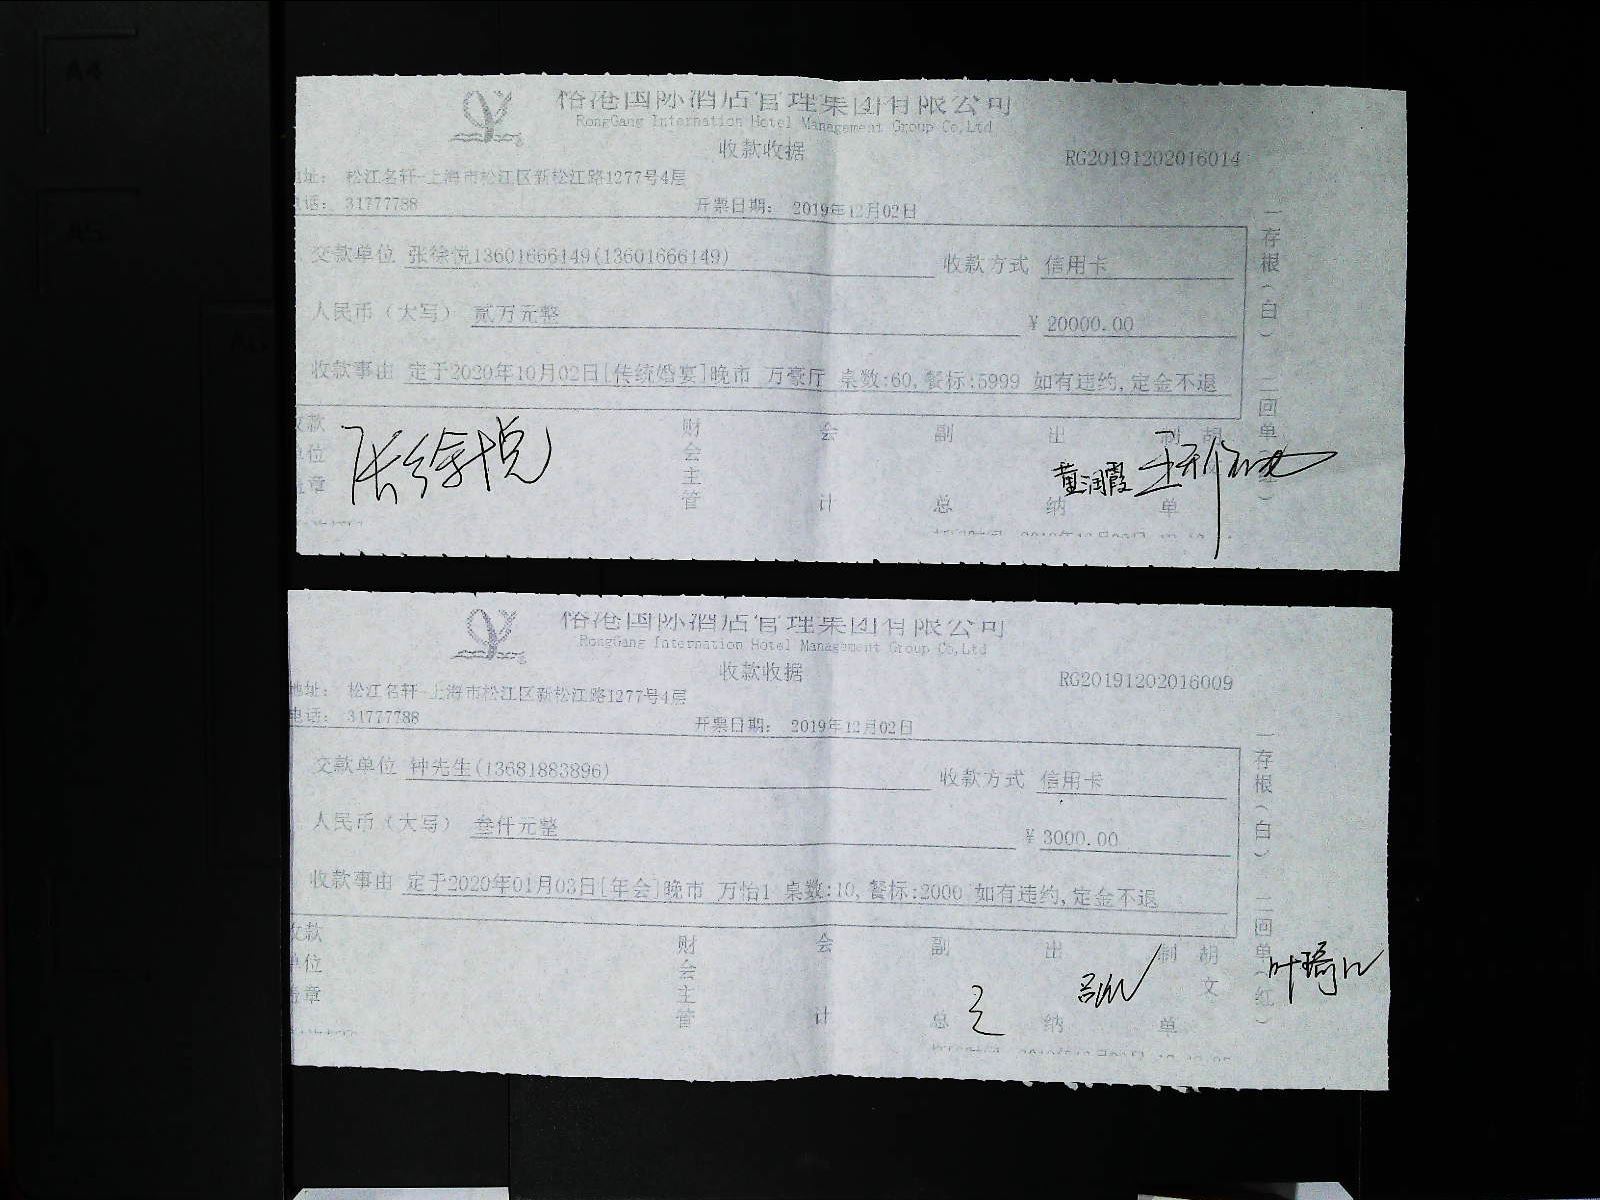 国际酒店管理集团有限公司
RongGang Internation Hotel Management Group Co,Ltd
收款收据
RG20191202016014
地址： 松江名轩-上海市松江区新松江路1277号4层
电话： 31777788
开票日期： 2019年12月02日
交款单位 张徐悦13601666149(13601666149)
收款方式 信用卡
人民币（大写） 贰万元整
￥ 20000.00
收款事由 定于2020年10月02日[传统婚宴]晚市 万豪厅 桌数:60,餐标:5999 如有违约,定金不退
一存根（白） 二回单
收款单位盖章
张徐悦
财会主管
会计
副总
出纳
制单
胡
黄润霞
国际酒店管理集团有限公司
RongGang Internation Hotel Management Group Co,Ltd
收款收据
RG20191202016009
地址： 松江名轩-上海市松江区新松江路1277号4层
电话： 31777788
开票日期： 2019年12月02日
交款单位 钟先生(13681883896)
收款方式 信用卡
人民币（大写） 叁仟元整
￥ 3000.00
收款事由 定于2020年01月03日[年会]晚市 万怡1 桌数:10,餐标:2000 如有违约,定金不退
一存根（白） 二回单（红）
收款单位盖章
财会主管
会计
副总
出纳
制单
胡文